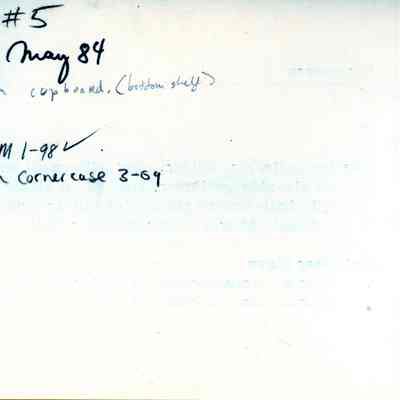 #5
May 84
cupboard. (bottom shelf)
M 1-98 ✓
Corner case 3-69